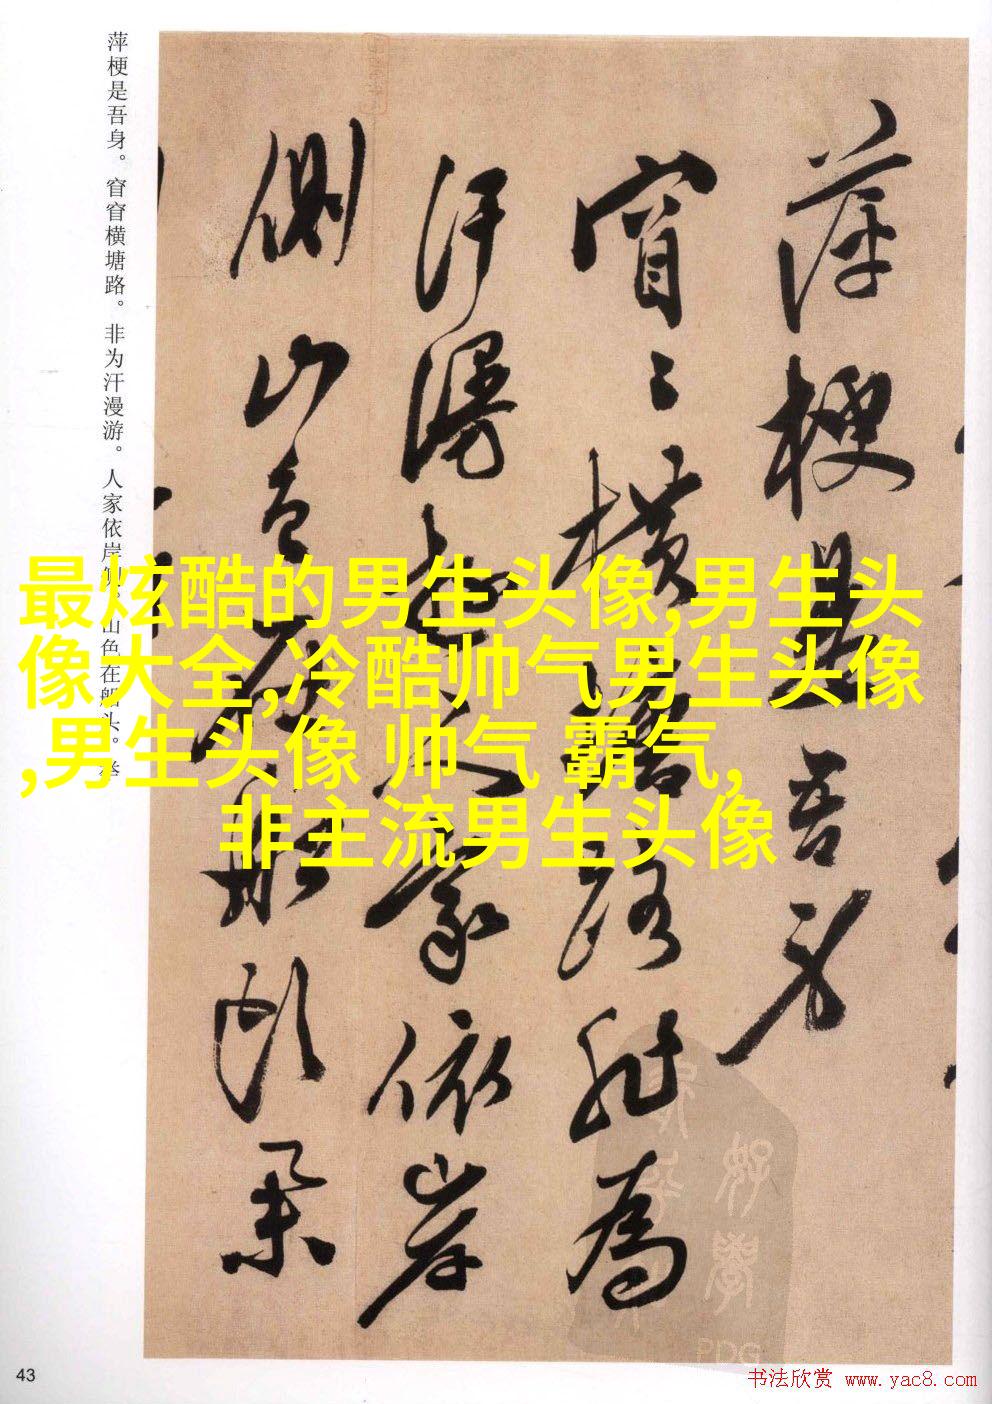 萍梗是吾身。窅窅横塘路。非为汗漫游。人家依岸侧。山色在船头。
萍梗是吾身
窅〻橫塘路非為
汗漫遊人家依岸
側山色在船頭
最炫酷的男生头像,男生头
像大全,冷酷帅气男生头像
,男生头像 帅气 霸气,
非主流男生头像
PDG
43
书法欣赏 www.yac8.com